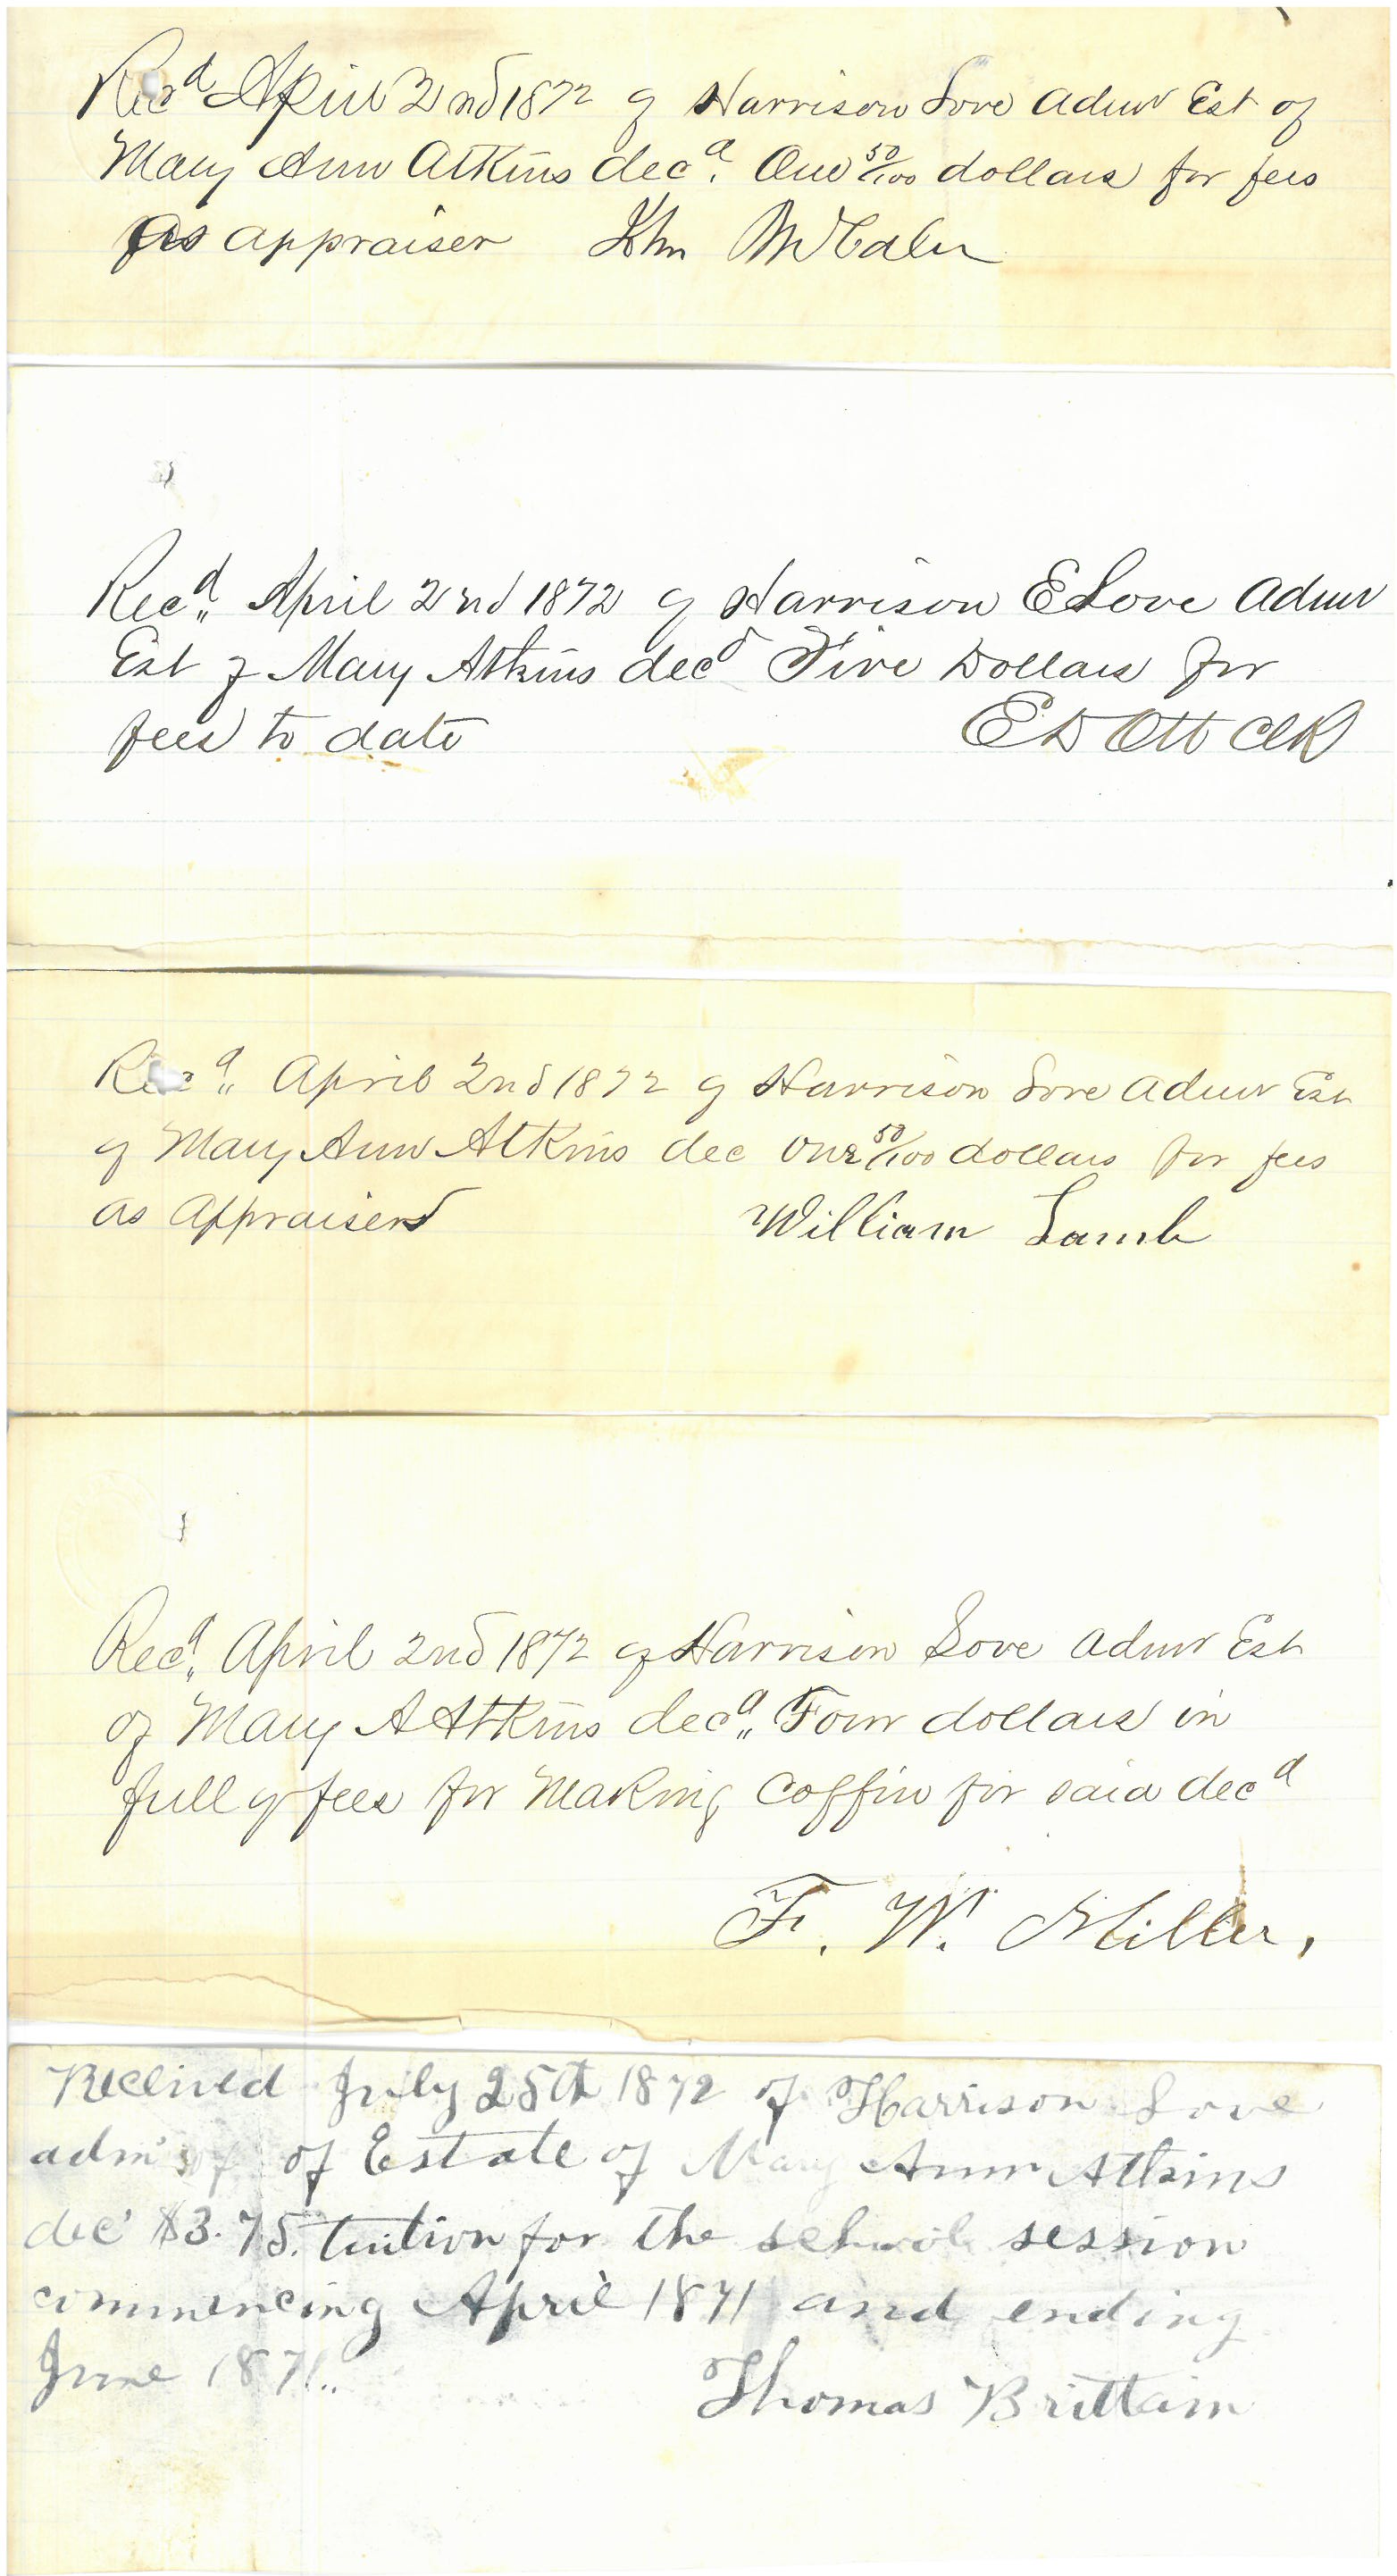 Recd April 2nd 1872 of Harrison Love Admr Est of
Mary Ann Atkins decd. One 50/100 dollars for fees
as appraiser
Recd,, April 2nd 1872 of Harrison E Love Admr
Est of Mary Atkins decd Five Dollars for
fees to date E D Ott Clk
Recd,, April 2nd 1872 of Harrison Love Admr Est
of Mary Ann Atkins dec One 50/100 dollars for fees
as Appraiser William Lamb
Recd,, April 2nd 1872 of Harrison Love Admr Est
of Mary A Atkins decd,, Four dollars in
full of fees for Making Coffin for said decd
F. W. Miller,
Received July 25th 1872 of Harrison Love
adm' of Estate of Mary Ann Atkins
dec' $3.75. tuition for the school session
commencing April 1871 and ending
June 1871..
Thomas Brittain